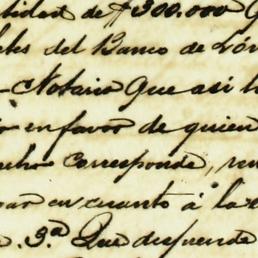 tidad de $300.000 Q
les del Banco de Lón
- Notario Que asi l
en favor de quien
cho corresponde, re
en cuanto á la
. 3.ª Que desprende